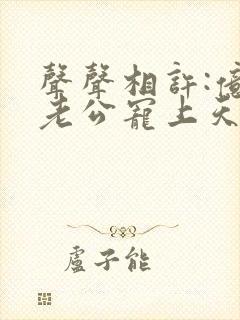 聲聲相許:億
老公寵上天
盧子能